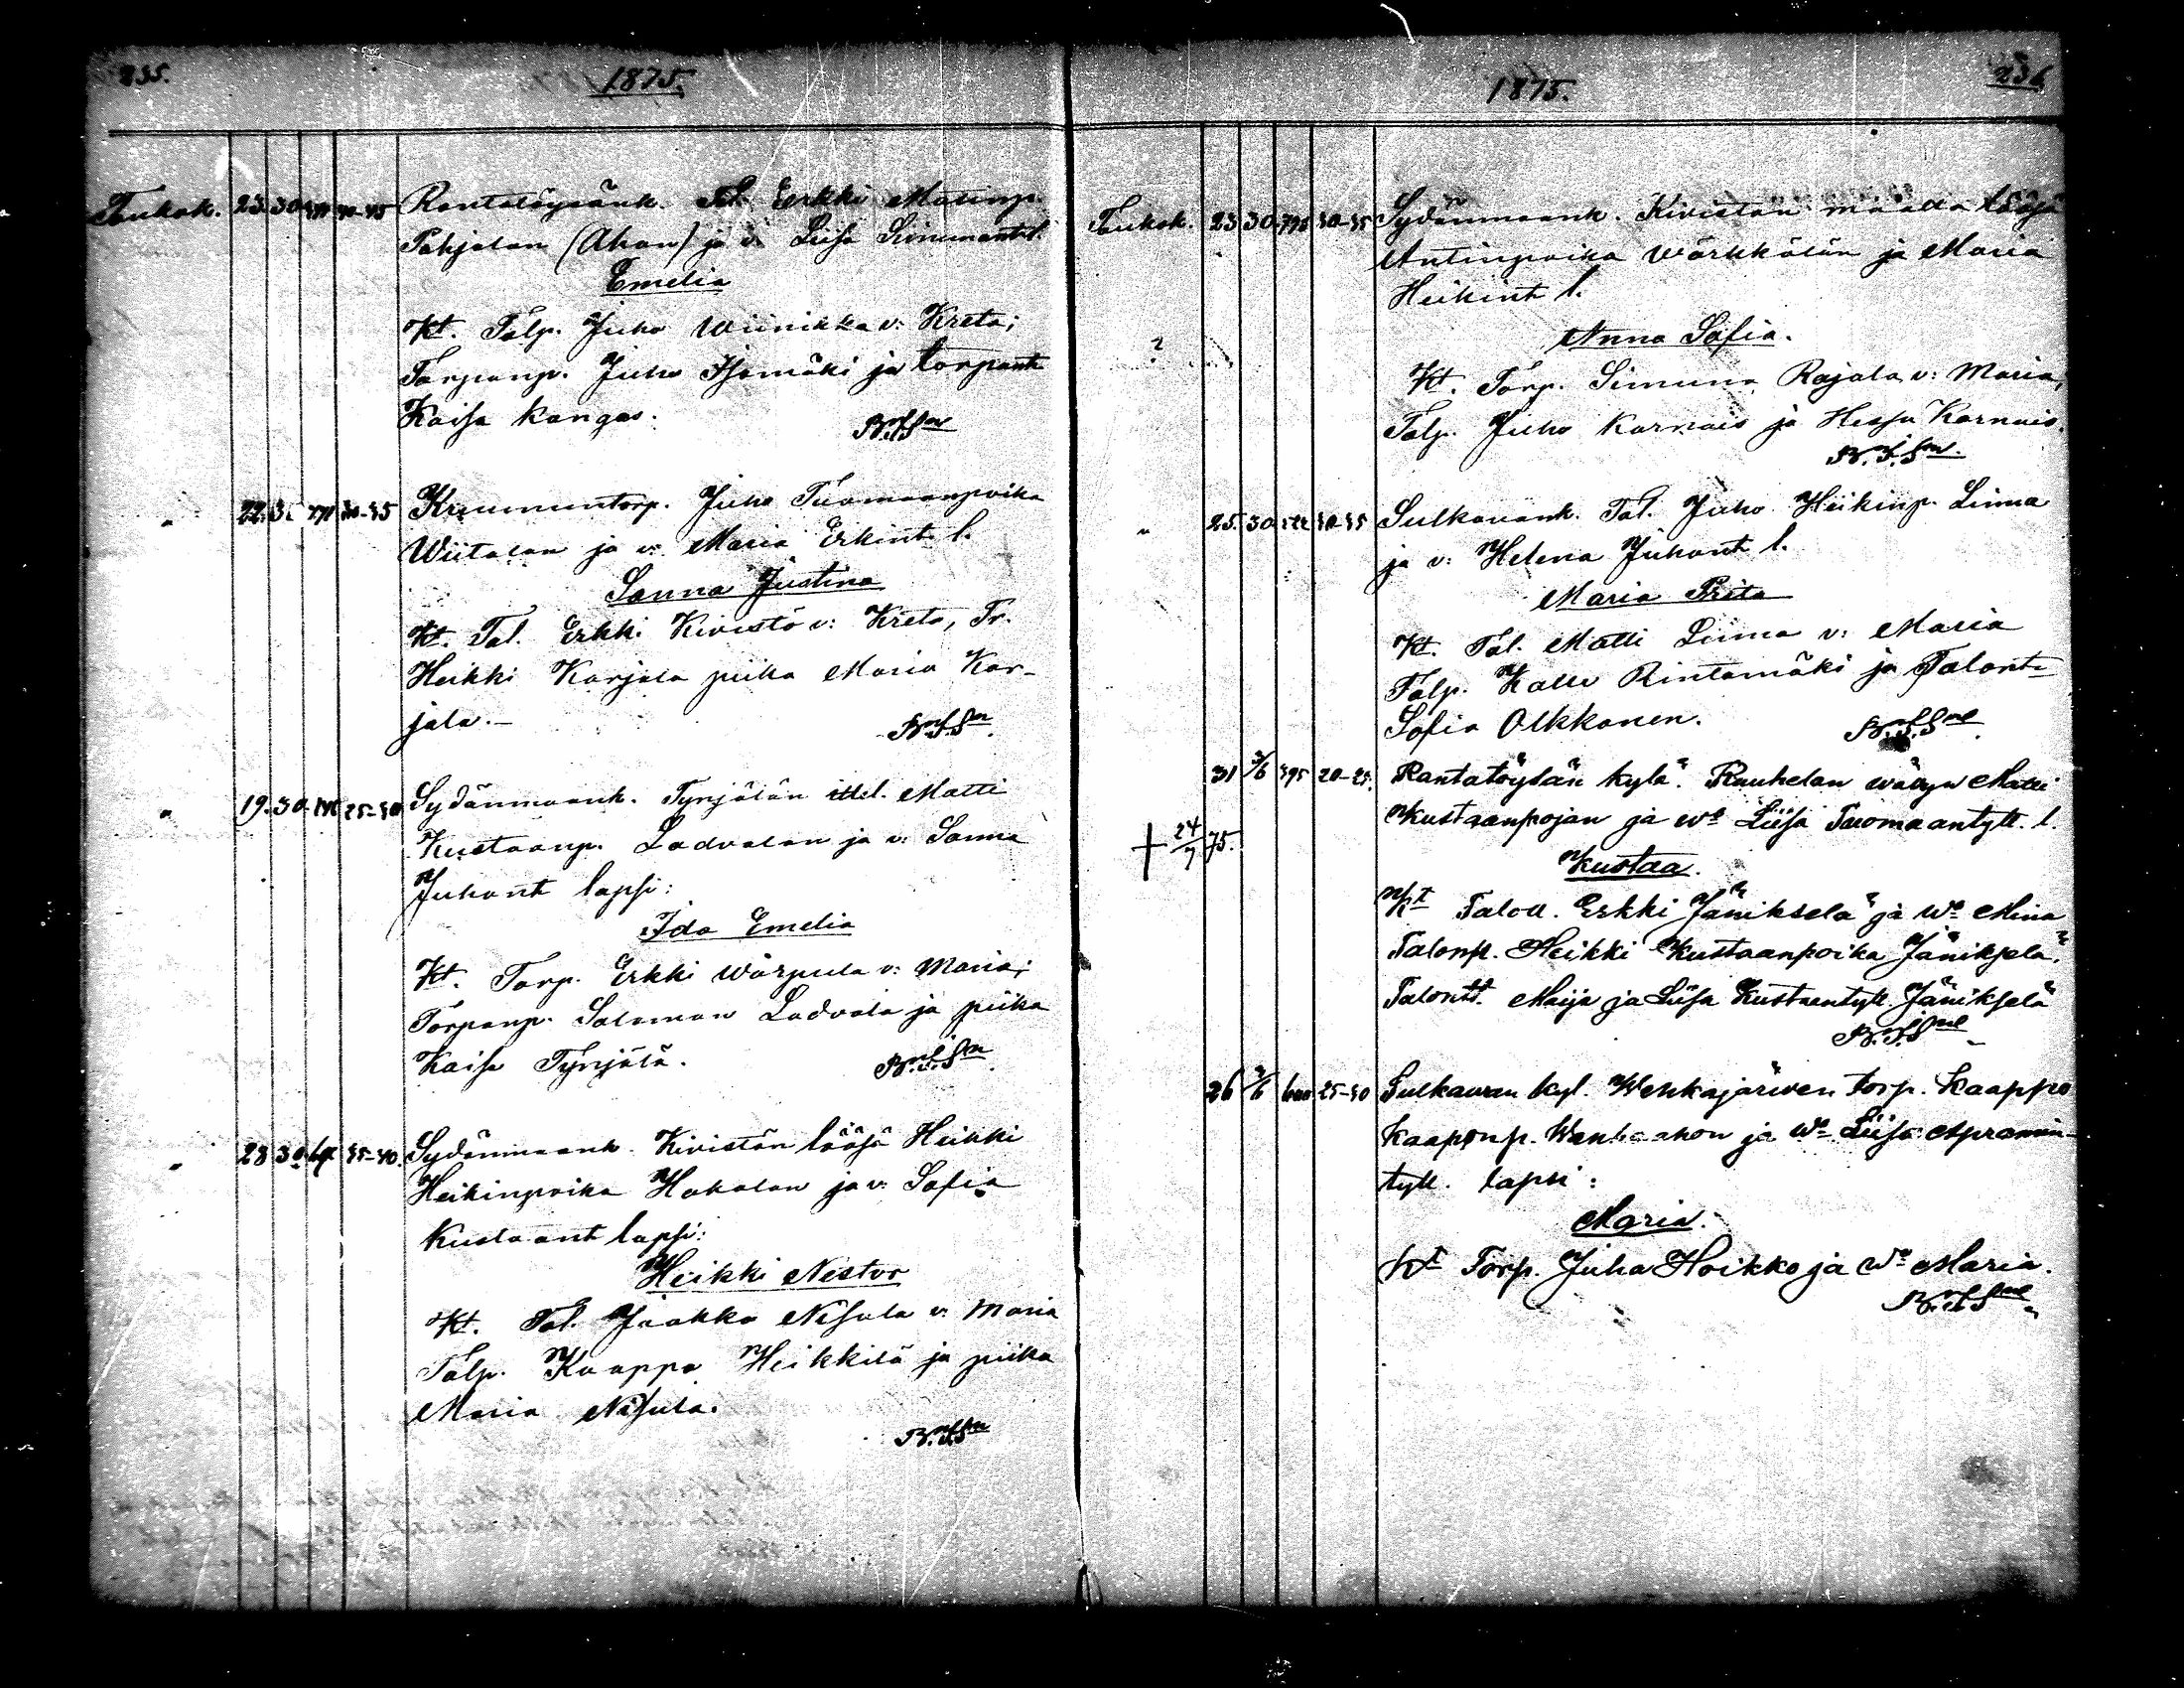 235.
1875.
Toukok. 23 30 30-35 Rantatöysänk. Tal. Erkki Matinp.
Pohjolan (Ahon) ja v: Liisa Simuant. l.
Emelia
Kt. Talp. Juho Wiinikka v: Kreta;
Torpanp. Juho Isomäki ja torpant
Kaisa Kangas.
" 22. 30-35 Kruununtorp. Juho Tuomaanpoika
Wiitalan ja v: Maria Erkint. l.
Sanna Justina
Kt. Tal. Erkki Kivistö v: Kreta, Tr.
Heikki Karjala piika Maria Kar-
jala.
" 19. 30 25-30 Sydänmaank. Tynjälän itsel. Matti
Kustaanp. Ladvalan ja v: Sanna
Juhont lapsi:
Ida Emelia
Kt. Torp. Erkki Wärpula v: Maria;
Torpanp. Salomon Ladvala ja piika
Kaisa Tynjälä.
" 28 30 35-40. Sydänmaank. Kivistön lööjä Heikki
Heikinpoika Hakalan ja v: Sofia
Kustaant lapsi:
Heikki Nestor
Kt. Tal. Jaakko Nisula v: Maria
Talp. Kaappo Heikkilä ja piika
Maria Nisula.
1875.
236
Toukok. 23 30 30-35 Sydänmaank. Kivistön maalla lööjä
Antinpoika Wärkkälän ja Maria
Heikint l.
Anna Sofia.
?
Kt. Torp. Simuna Rajala v: Maria,
Talp. Juho Karnais ja Hessu Karnais.
" 25. 30 30-35 Sulkavank. Tal. Juho Heikinp. Liima
ja v: Helena Juhont l.
Maria Priita
Kt. Tal. Matti Liima v: Maria
Talp. Kalle Rintamäki ja Talont
Sofia Olkkonen.
31 3/6 395 20-25. Rantatöysän kylä. Rauhelan wävyn Matti
Kustaanpojan ja wo Liisa Tuomaantytt. l.
+ 24/7 75.
Kustaa.
Kt Taloll. Erkki Jäniksela ja Wo Miina
Talonp. Heikki Kustaanpoika Jäniksela,
Talontt. Maija ja Liisa Kustaantytt. Jäniksela
26 3/6 25-30 Sulkawan kyl. Wehkajärwen torp. Kaappo
Kaaponp. Wanha ahon ja Wo Liisa Apramin-
tytt. lapsi:
Maria.
Kt Torp. Juha Hoikko ja Wo Maria.